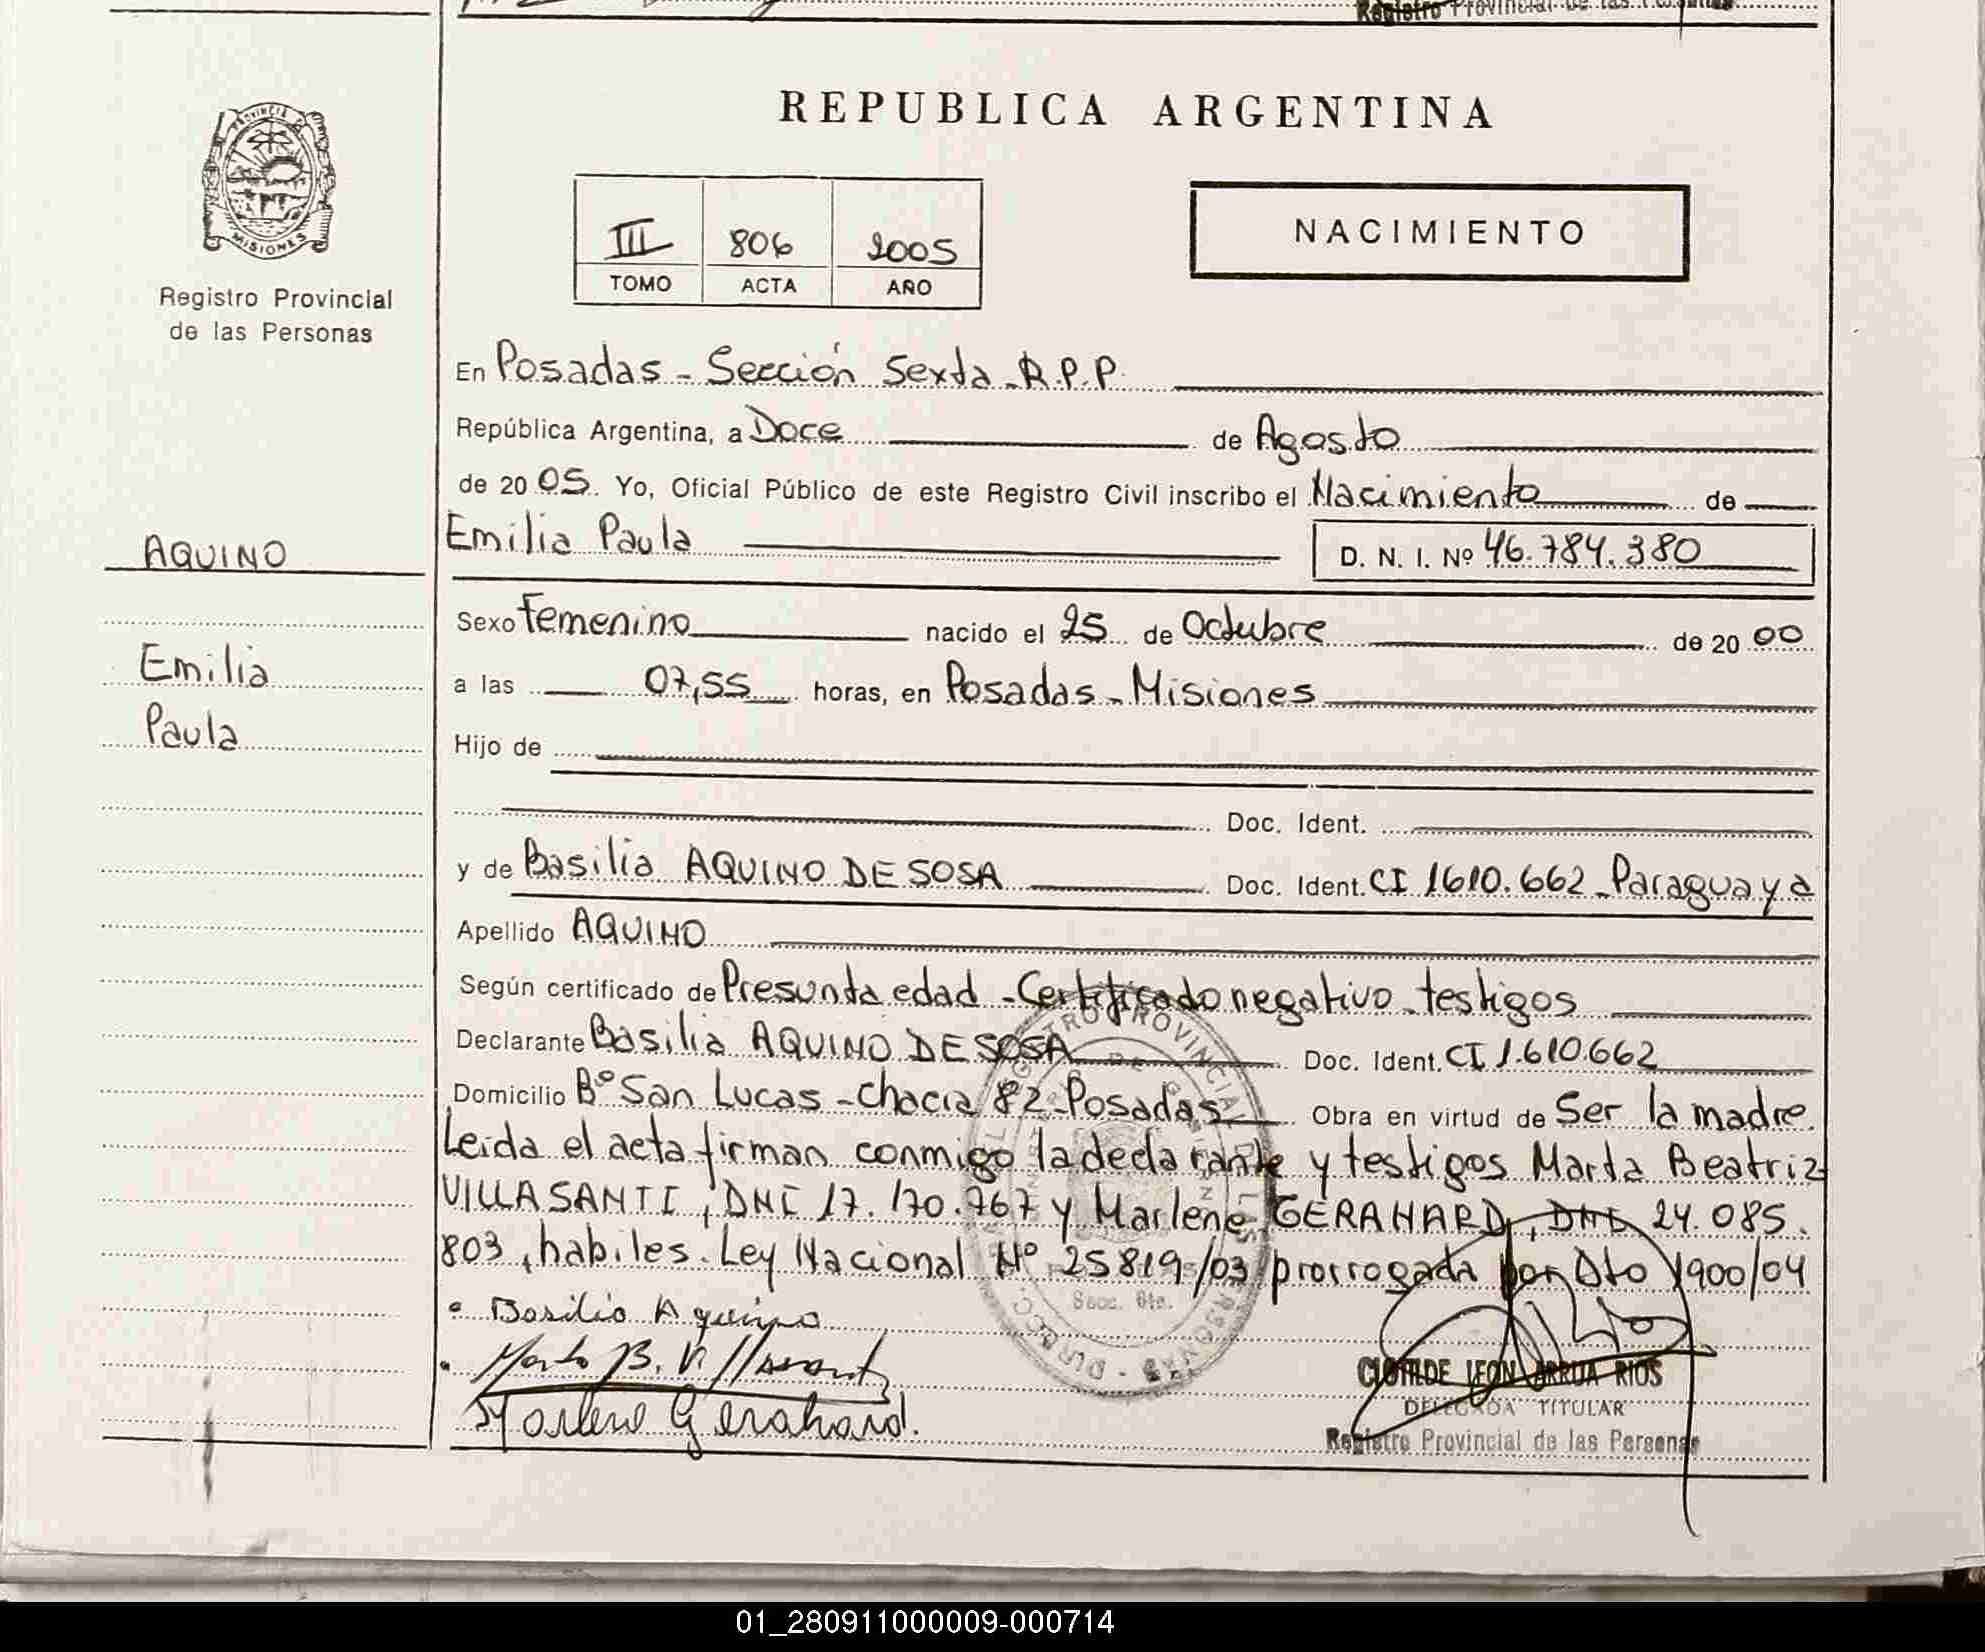 Registro Provincial de las Personas
PROVINCIA DE
MISIONES
Registro Provincial
de las Personas
REPUBLICA ARGENTINA
III 806 2005
TOMO ACTA AÑO
NACIMIENTO
En Posadas - Sección Sexta - R.P.P.
República Argentina, a Doce de Agosto
de 20 05. Yo, Oficial Público de este Registro Civil inscribo el Nacimiento de
AQUINO
Emilia Paula D. N. I. Nº 46.784.380
Sexo Femenino nacido el 25 de Octubre de 20 00
Emilia
a las 07,55 horas, en Posadas - Misiones
Paula
Hijo de
Doc. Ident.
y de Basilia AQUINO DE SOSA Doc. Ident. CI 1610.662 - Paraguaya
Apellido AQUINO
Según certificado de Presunta edad - Certificado negativo - testigos
Declarante Basilia AQUINO DE SOSA Doc. Ident. CI 1.610.662
Domicilio Bº San Lucas - Chacra 82 - Posadas Obra en virtud de Ser la madre.
Leída el acta firman conmigo la declarante y testigos Marta Beatriz
VILLASANTI, DNI 17.170.767 y Marlene GERAHARD, DNI 24.085.
803, habiles. Ley Nacional Nº 25819/03 prorrogada por Dto 1900/04
Secc. 6ta.
Basilia Aquino
Marta B. Villasanti
Marlene Gerahard.
CLOTILDE LEON ARRUA RIOS
DELEGADA TITULAR
Registro Provincial de las Personas
01_280911000009-000714